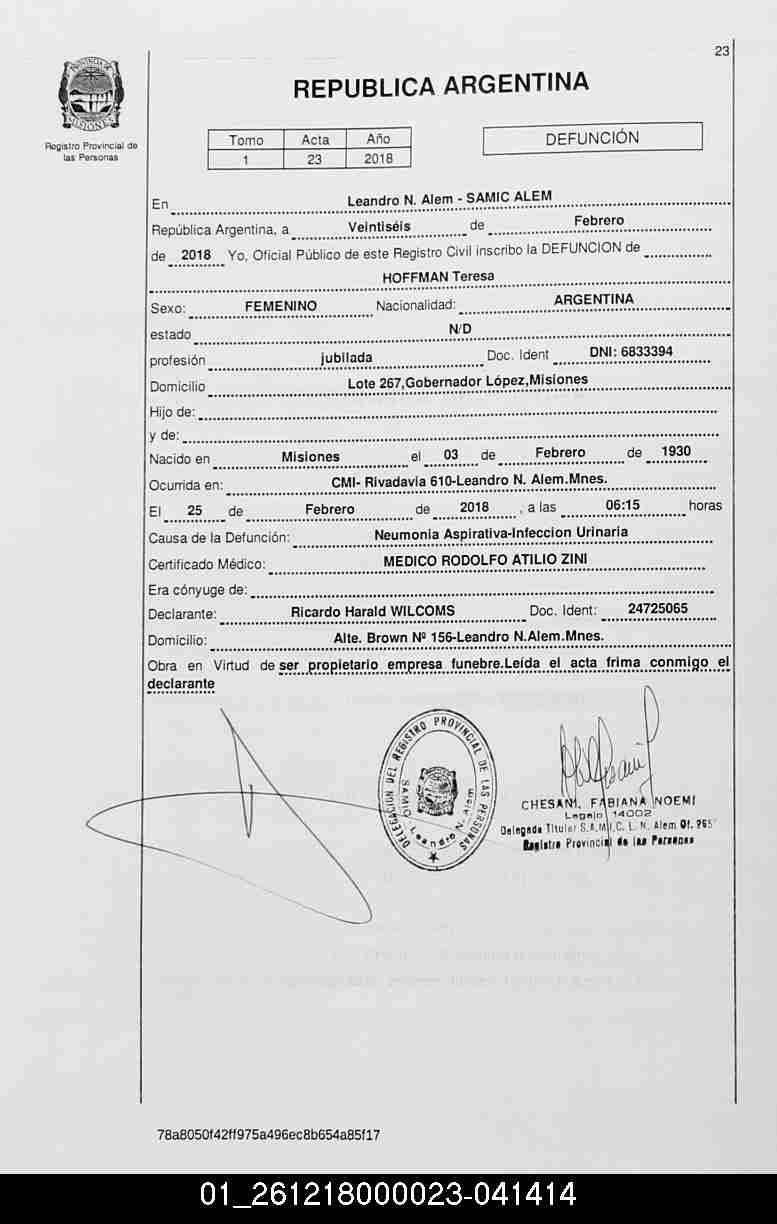 23
PROVINCIA DE
MISIONES
Registro Provincial de
las Personas
REPUBLICA ARGENTINA
Tomo Acta Año
1 23 2018
DEFUNCIÓN
En Leandro N. Alem - SAMIC ALEM
República Argentina, a Veintiséis de Febrero
de 2018 Yo, Oficial Público de este Registro Civil inscribo la DEFUNCION de
HOFFMAN Teresa
Sexo: FEMENINO Nacionalidad: ARGENTINA
estado N/D
profesión jubilada Doc. Ident DNI: 6833394
Domicilio Lote 267,Gobernador López,Misiones
Hijo de:
y de:
Nacido en Misiones el 03 de Febrero de 1930
Ocurrida en: CMI- Rivadavia 610-Leandro N. Alem.Mnes.
El 25 de Febrero de 2018 , a las 06:15 horas
Causa de la Defunción: Neumonia Aspirativa-Infeccion Urinaria
Certificado Médico: MEDICO RODOLFO ATILIO ZINI
Era cónyuge de:
Declarante: Ricardo Harald WILCOMS Doc. Ident: 24725065
Domicilio: Alte. Brown Nº 156-Leandro N.Alem.Mnes.
Obra en Virtud de ser propietario empresa funebre.Leída el acta frima conmigo el
declarante
DELEGACION DEL REGISTRO PROVINCIAL DE LAS PERSONAS
SAMIC - Leandro N. Alem
CHESANI, FABIANA NOEMI
Legajo 14002
Delegada Titular S.A.M.I.C. L. N. Alem Of.
Registro Provincial de las Personas
78a8050f42ff975a496ec8b654a85f17
01_261218000023-041414